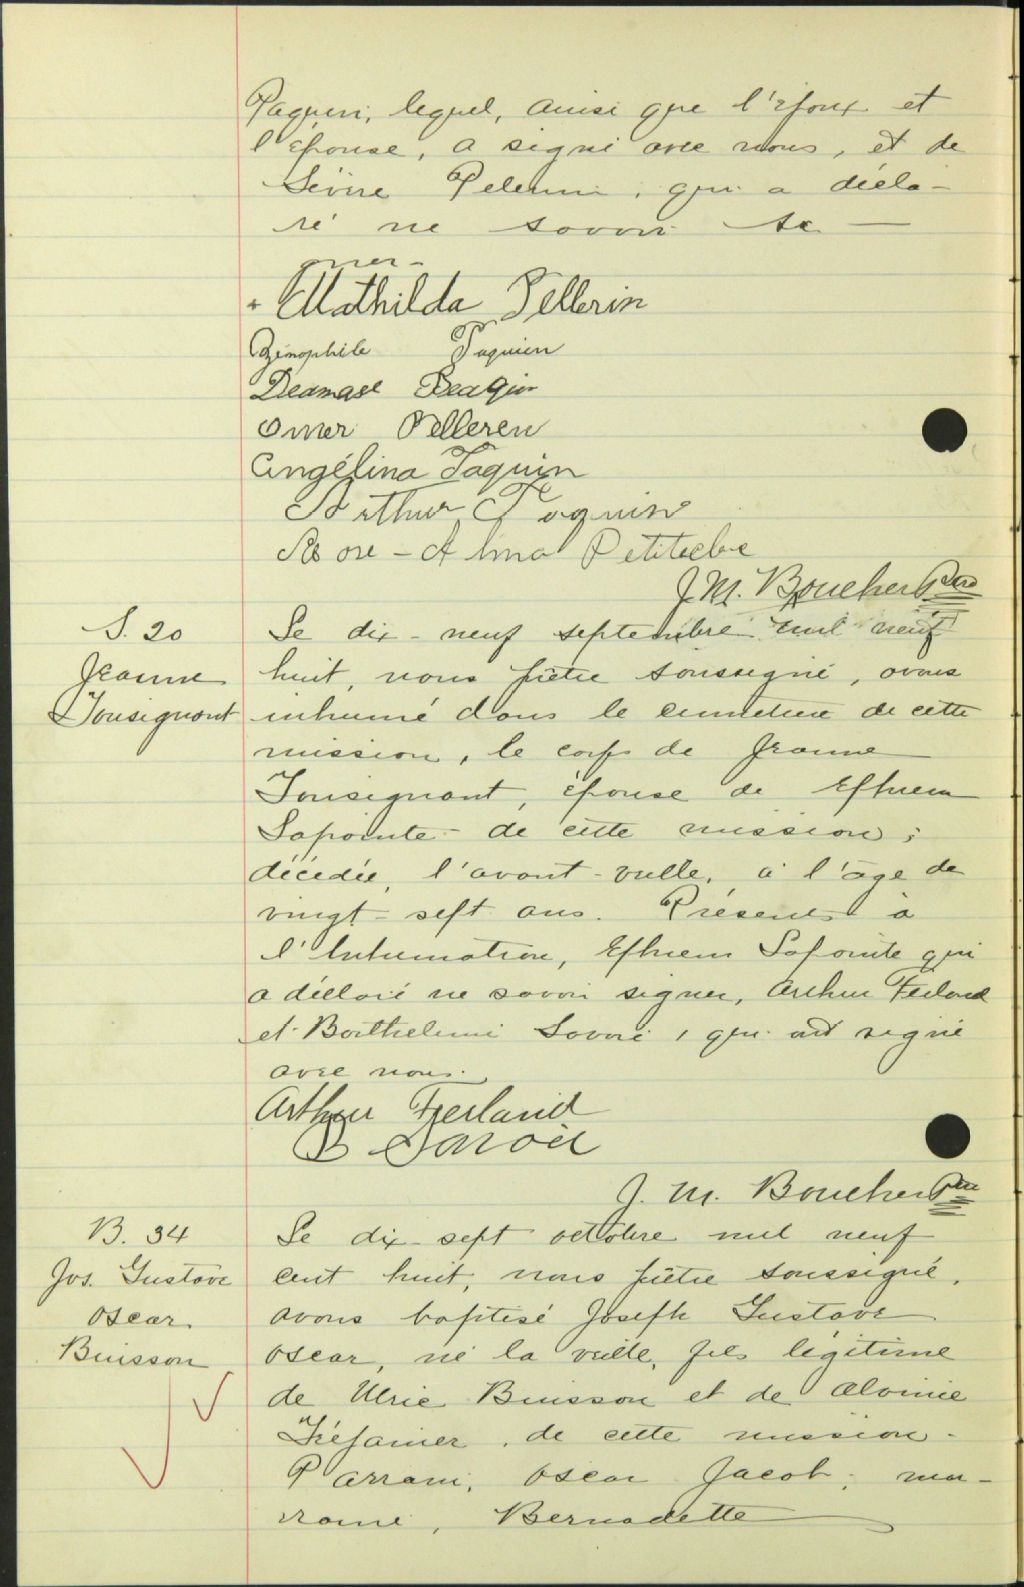 Paquin, lequel, ainsi que l'époux et
l'épouse, a signé avec nous, et de
Sévère Pelerin, qui a décla-
ré ne savoir si-
gner-
Mathilda Pellerin
Zénophile Paquin
Deamase Peaquin
Omer Pelleren
Angélina Paquin
Arthur Paquin
Rose-Alma Petitclerc
J. M. Boucher Ptre
S. 20
Jeanne
Tousignant
Le dix-neuf septembre mil neuf
huit, nous prêtre soussigné, avons
inhumé dans le cimetière de cette
mission, le corps de Jeanne
Tousignant, épouse de Ephrem
Lapointe de cette mission;
décédée, l'avant-veille, à l'âge de
vingt-sept ans. Présents à
l'inhumation, Ephrem Lapointe qui
a déclaré ne savoir signer, Arthur Ferland
et Barthelemi Savoie, qui ont signé
avec nous.
Arthur Ferland
B Savoie
J. M. Boucher Ptre
B. 34
Jos. Gustave
Oscar
Buisson
Le dix-sept octobre mil neuf
cent huit, nous prêtre soussigné,
avons baptisé Joseph Gustave
Oscar, né la veille, fils légitime
de Ulric Buisson et de Alvinie
Trépanier, de cette mission-
Parrain, Oscar Jacob; mar-
raine, Bernadette